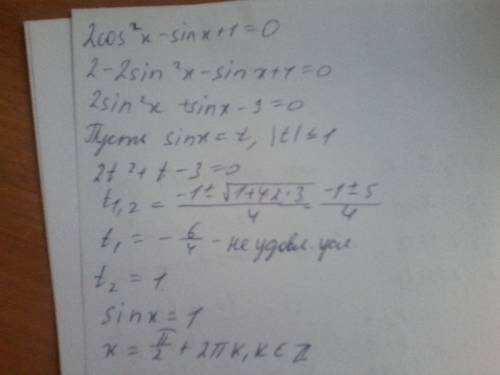 2cos²x - sinx + 1 = 0
2 - 2sin²x - sinx + 1 = 0
2sin²x + sinx - 3 = 0
Пусть sinx = t, |t| ≤ 1
2t² + t - 3 = 0
t₁,₂ = (-1 ± √(1+4·2·3))/4 = (-1 ± 5)/4
t₁ = - 6/4 - не удовл. усл.
t₂ = 1
sinx = 1
x = π/2 + 2πk, k ∈ Z